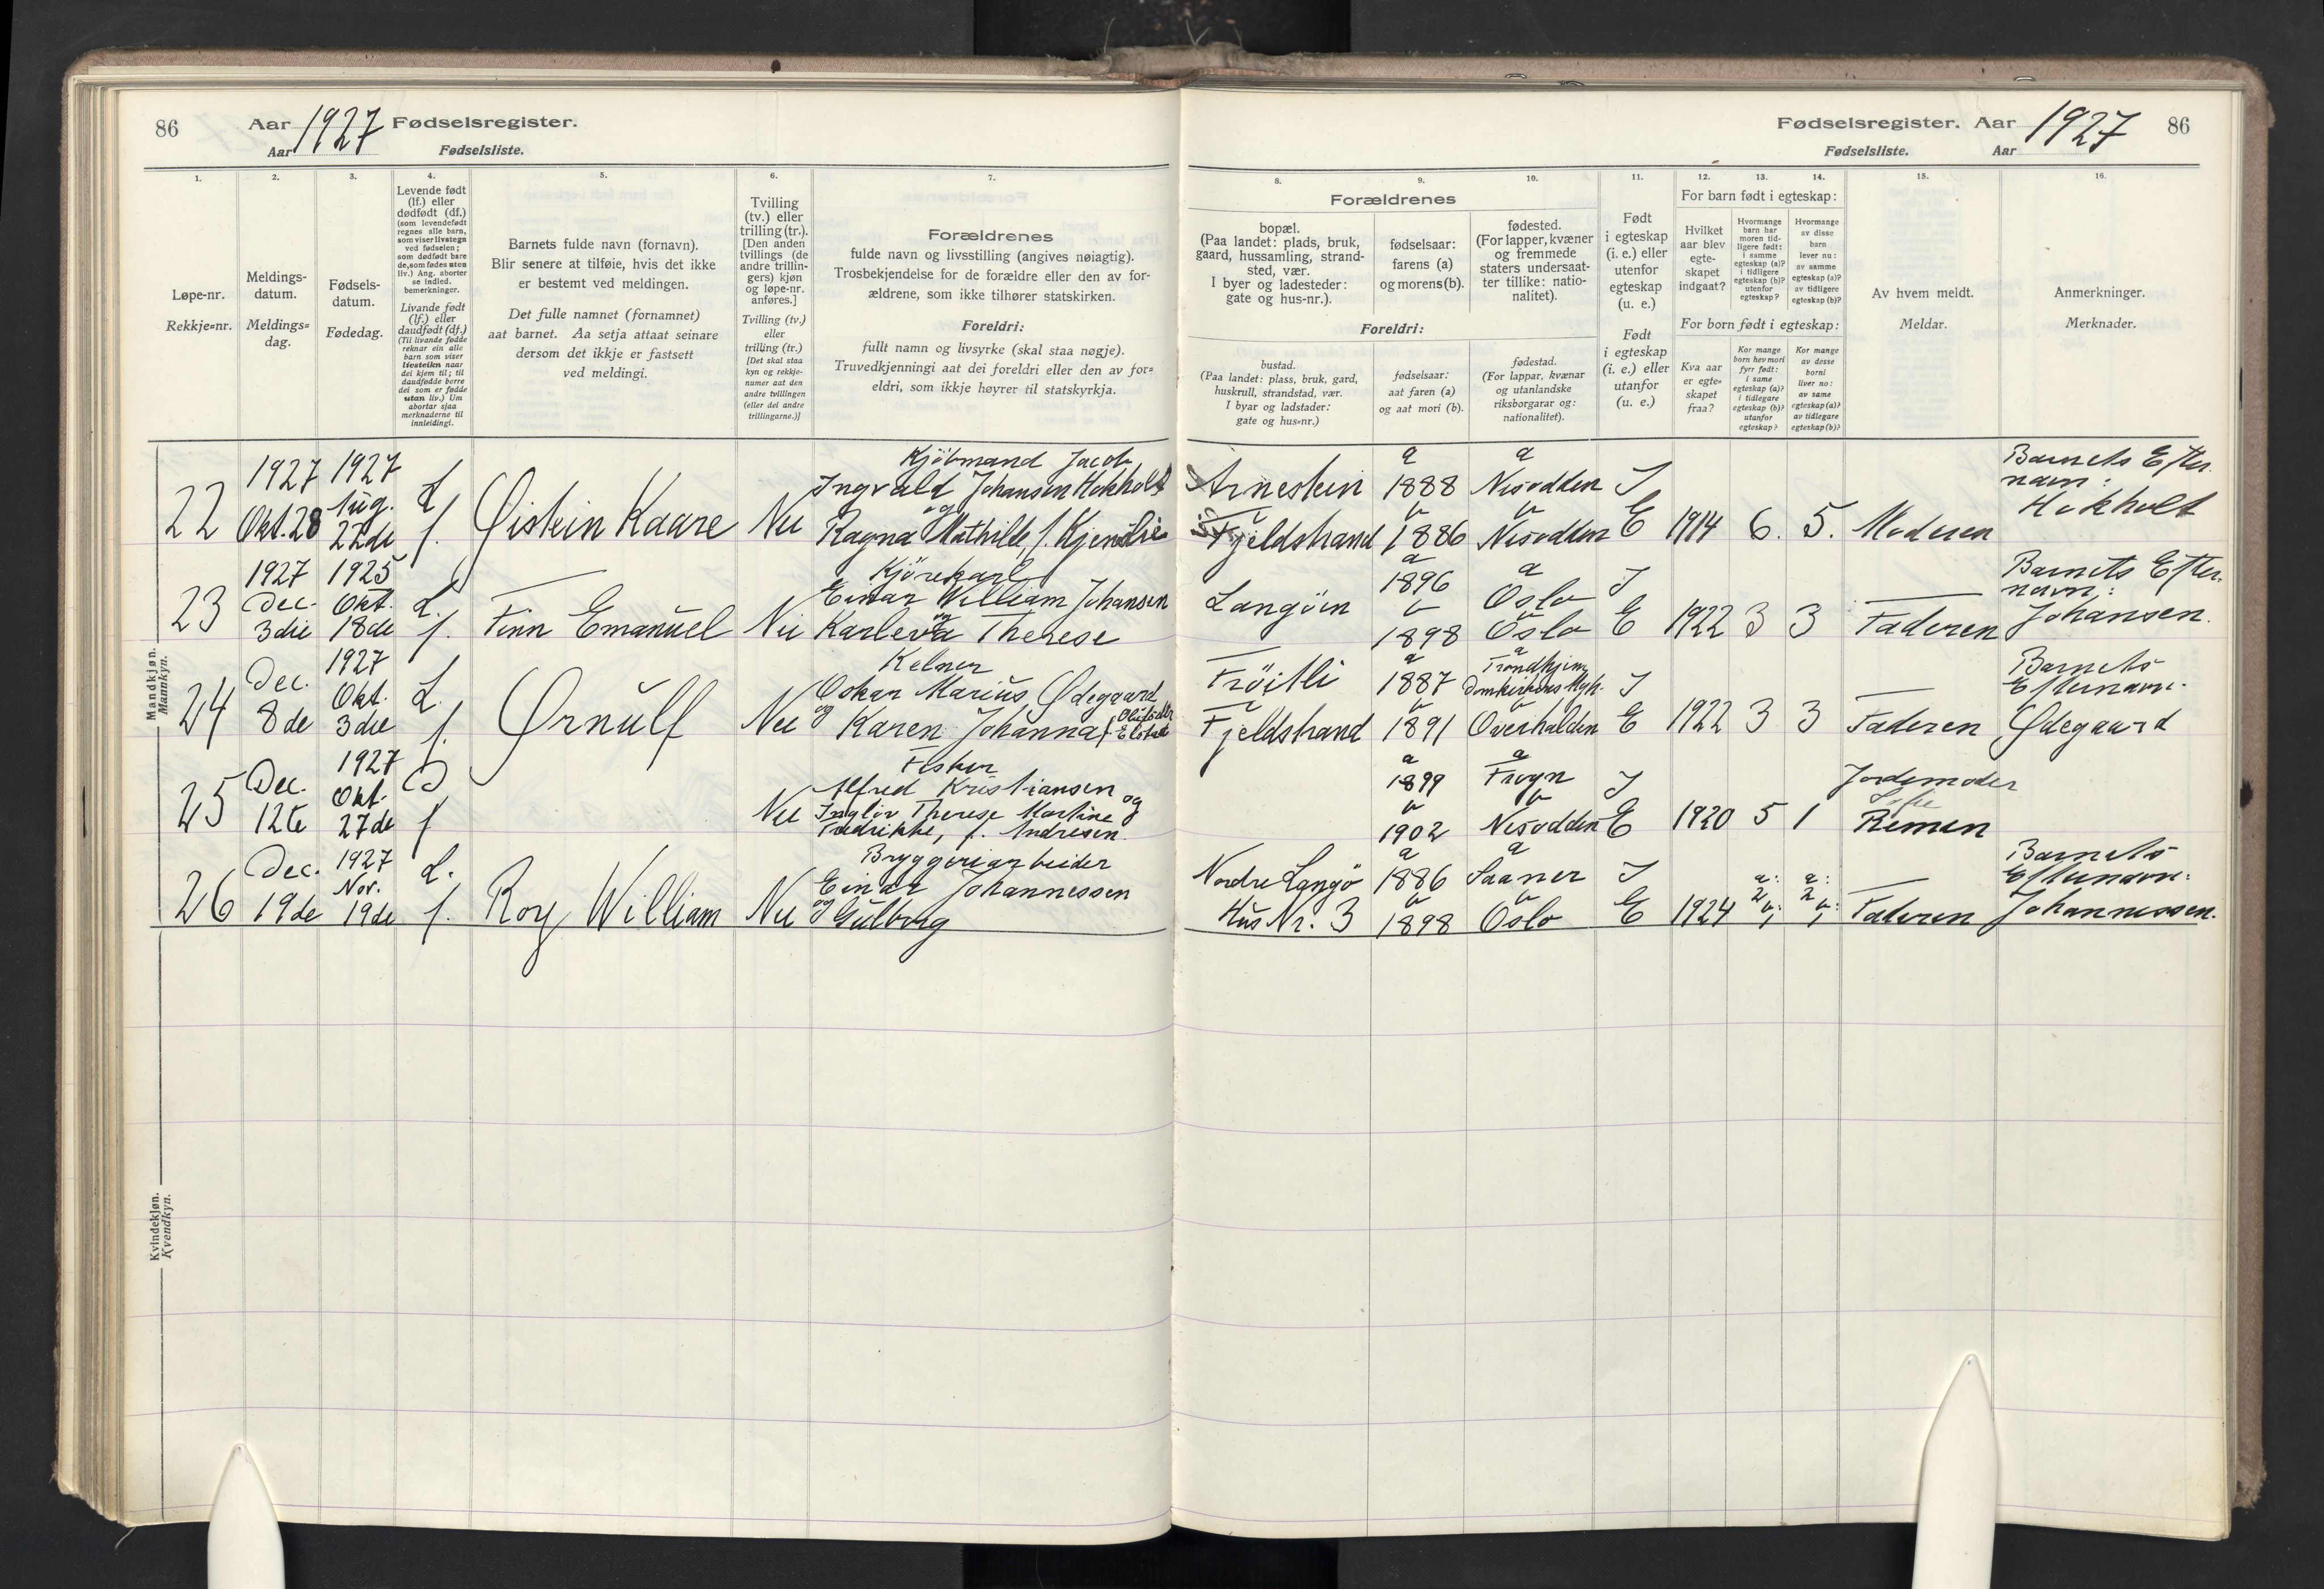 86
Aar 1927 Fødselsregister.
Aar
Fødselsliste.
1.
2.
3.
4.
5.
6.
7.
Løpe-nr.
Rekkje=nr.
Meldings-
datum.
Meldings=
dag.
Fødsels-
datum.
Fødedag.
Levende født
(lf.) eller
dødfødt (df.)
(som levendefødt
regnes alle barn,
som viser livstegn
ved fødselen;
som dødfødt bare
de, som fødes uten
liv.) Ang. aborter
se indled.
bemerkninger.
Livande født
(lf.) eller
daudfødt (df.)
(Til livande fødde
reknar ein alle
barn som viser
livsteikn naar
dei kjem til; til
daudfødde berre
dei som er fødde
utan liv.) Um
abortar sjaa
merknaderne til
innleidingi.
Barnets fulde navn (fornavn).
Blir senere at tilføie, hvis det ikke
er bestemt ved meldingen.
Det fulle namnet (fornamnet)
aat barnet. Aa setja attaat seinare
dersom det ikkje er fastsett
ved meldingi.
Tvilling
(tv.) eller
trilling (tr.).
[Den anden
tvillings (de
andre trillin-
gers) kjøn
og løpe-nr.
anføres.]
Tvilling (tv.)
eller
trilling (tr.)
[Det skal staa
kyn og rekkje-
numer aat den
andre tvillingen
(eller dei andre
trillingarne.)]
Forældrenes
fulde navn og livsstilling (angives nøiagtig).
Trosbekjendelse for de forældre eller den av for-
ældrene, som ikke tilhører statskirken.
Foreldri:
fullt namn og livsyrke (skal staa nøgje).
Truvedkjenningi aat dei foreldri eller den av for=
eldri, som ikkje høyrer til statskyrkja.
Mandkjøn.
Mannkyn.
Kvindekjøn.
Kvendkyn.
22
1927
Okt. 28
1927
Aug.
22de
L
f.
Øistein Kaare
Nei
Kjöbmand Jacob
Ingvald Johansen Hokholt
og
Ragna Mathilde, f. Kjemslie
23
1927
Dec.
3die
1925
Okt.
18de
L.
f.
Finn Emanuel
Nei
Kjörekarl
Einar William Johansen
og
Karleva Therese
24
Dec.
8de
1927
Okt.
3die
L.
f.
Ørnulf
Nei
Kelner
Oskar Marius Ødegaard
og Karen Johanna f.
25
Dec.
12te
1927
Okt.
27de
D
f
Nei
Fisker
Alfred Kristiansen og
Ingliv Therese Martine
Fredrikke, f. Andresen.
26
Dec.
19de
1927
Nov.
19de
L.
f.
Roy William
Nei
Bryggeriarbeider
Einar Johannessen
og Gulborg
Fødselsregister. Aar 1927
86
Fødselsliste.
Aar
8.
9.
10.
11.
12.
13.
14.
15.
16.
Forældrenes
bopæl.
(Paa landet: plads, bruk,
gaard, hussamling, strand-
sted, vær.
I byer og ladesteder:
gate og hus-nr.).
fødselsaar:
farens (a)
og morens (b).
fødested.
(For lapper, kvæner
og fremmede
staters undersaat-
ter tillike: natio-
nalitet).
Foreldri:
bustad.
(Paa landet: plass, bruk, gard,
huskrull, strandstad, vær.
I byar og ladstader:
gate og hus=nr.)
fødselsaar:
aat faren (a)
og aat mori (b).
fødestad.
(For lappar, kvænar
og utanlandske
riksborgarar og:
nationalitet).
Født
i egteskap
(i. e.) eller
utenfor
egteskap
(u. e.)
Født
i egteskap
(i. e.) eller
utanfor
(u. e.)
For barn født i egteskap:
Hvilket
aar blev
egte-
skapet
indgaat?
Hvormange
barn har
moren tid-
ligere født:
i samme
egteskap (a)?
i tidligere
egteskap (b)?
utenfor
egteskap?
Hvormange
av disse
barn
lever nu:
av samme
egteskap (a)?
av tidligere
egteskap (b)?
For born født i egteskap:
Kva aar
er egte=
skapet
fraa?
Kor mange
born hev mori
fyrr født:
i same
egteskap (a)?
i tidlegare
egteskap (b)?
utanfor
egteskap?
Kor mange
av desse
borni
liver no:
av same
egteskap (a)?
av tidlegare
egteskap (b)?
Av hvem meldt.
Meldar.
Anmerkninger.
Merknader.
Arnestein
Fjeldstrand
a
1888
b
1886
a
Nesodden
b
Nesodden
I
E
1914
6.
5.
Moderen
Barnets Efter-
navn:
Hokholt
Langöen
a
1896
b
1898
a
Oslo
b
Oslo
I
E
1922
3
3
Faderen
Barnets Efter-
navn:
Johansen.
Fröitli
Fjeldstrand
a
1887
b
1891
a
Trondhjem
Domkirkens
b
Overhalden
I
E
1922
3
3
Faderen
Barnets
Efternavn:
Ødegaard
a
1899
b
1902
a
Frogn
b
Nesodden
I
E
1920
5
1
Jordemoder
Remen
Nordre Langö
Hus Nr. 3
a
1886
b
1898
a
Saaner
b
Oslo
I
E
1924
a:
2
b:
1
a:
2
b:
1
Faderen
Barnets
Efternavn:
Johannessen.